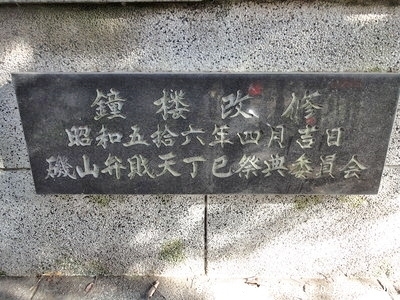 鐘楼改修
昭和五拾六年四月吉日
磯山弁財天丁巳祭典委員会